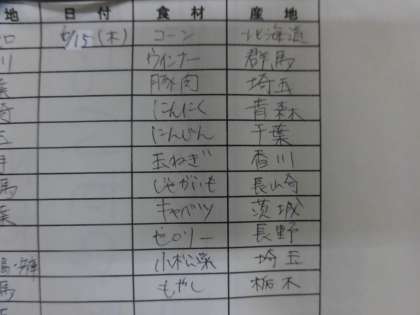 地 日付 食材 産地
口 6/15(木) コーン 北海道
川 ウインナー 群馬
豚肉 埼玉
にんにく 青森
玉 にんじん 千葉
玉ねぎ 香川
馬 じゃがいも 長崎
葉 キャベツ 茨城
セロリー 長野
島・兵庫 小松菜 埼玉
馬 もやし 栃木